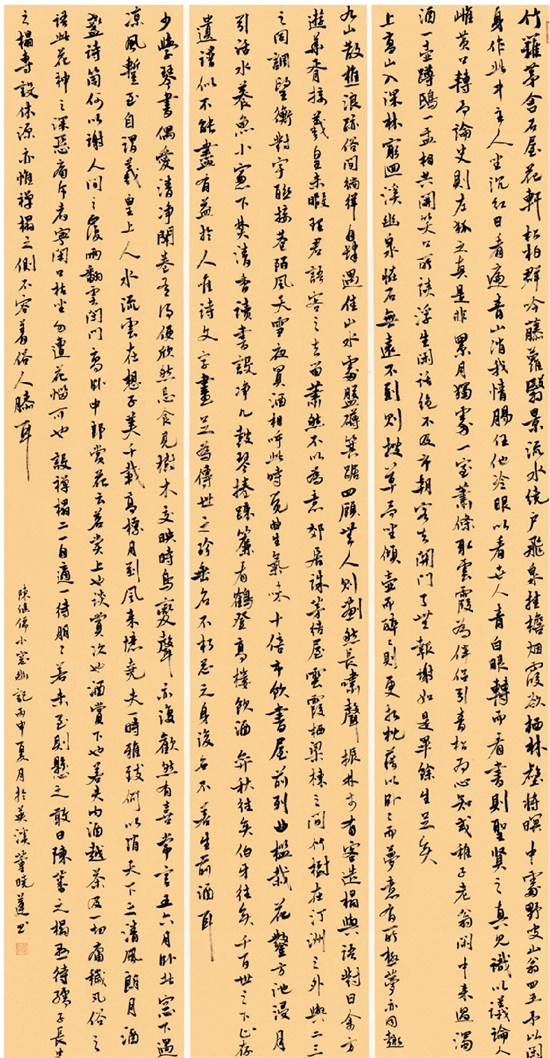 竹籬茅舍石屋花軒松柏群吟藤蘿翳景流水繞戶飛泉挂檐烟霞欲栖林壑將暝中處野叟山翁四五予以閑
身作此中主人坐沉紅日看遍青山消我情腸任他冷眼以看世人青白眼轉而看書則聖賢之真見識以議論人
雌黃口轉而論史則左狐之真是非累月獨處一室蕭條取雲霞為伴侶引青松為心知或稚子老翁閑中來過濁
酒一壺蹲鴟一盂相共開笑口所談浮生閑話絕不及市朝客去關門了無報謝如是畢餘生足矣
上高山入深林窮迴溪幽泉怪石無遠不到到則拂草而坐傾壺而醉醉則更相枕藉以卧卧而夢意有所極夢亦同趣
名山散樵浪迹俗間徜徉自肆遇佳山水處盤礴箕踞四顧無人則劃然長嘯聲振林木有客造榻與語對曰余方
遊華胥接羲皇未暇理君語客之去留蕭然不以為意郊居誅茅結屋雲霞栖梁棟之間竹樹在汀洲之外與二三
之同調望衡對宇聯接巷陌風天雪夜買酒相呼此時覺曲生氣味十倍市飲書屋前列曲檻栽花鑿方池浸月
引活水養魚小窗下焚清香讀書設净几鼓琴捲疏簾看鶴登高樓飲酒弈秋往矣伯牙往矣千百世之下止存
遺譜似不能盡有益於人唯詩文字畫足為傳世之珍垂名不朽總之身後名不若生前酒耳
少學琴書偶愛清净開卷有得便欣然忘食見樹木交映時鳥變聲亦復歡然有喜常言五六月卧北窗下遇
凉風暫至自謂羲皇上人水流雲在想子美千載高標月到風來憶堯夫一時雅致何以消天下之清風朗月酒
盞詩筒何以謝人間之覆雨翻雲閉門高卧中郎賞花云茗賞上也談賞次也酒賞下也若夫内酒越茶及一切庸穢凡俗之
語此花神之深惡痛斥者寧閉口枯坐勿遭花惱可也設禪榻二一自適一待朋朋若未至則懸之敢曰陳蕃之榻懸待孺子長史
之榻專設休源亦惟禪榻之側不容着俗人膝耳
陳繼儒小窗幽記丙申夏月於英溪曉蓮書